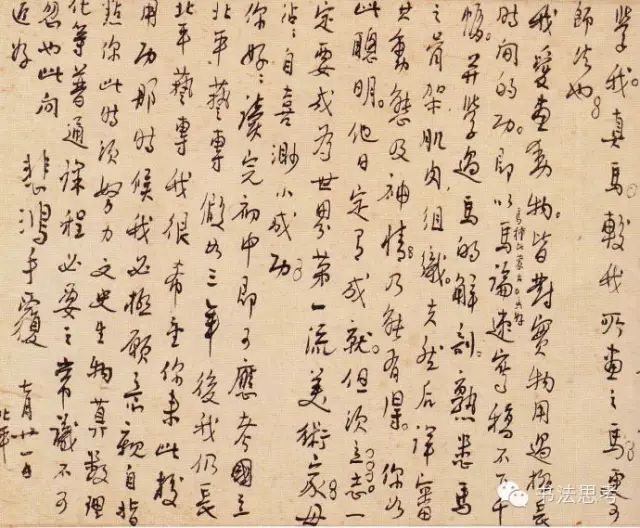 学我。真马较我所画之马更可
师法也。
我爱画动物。皆对实物用过极长
时间的功。即以马论速写稿不下千
幅。并学过马的解剖。熟悉马
之骨架肌肉组织。夫然后详审
其动态及神情。乃能有得。你如
此聪明。他日定有成就。但须立志一
定要成为世界第一流美术家。毋
沾沾自喜渺小成功。
你好好读完初中即可应考国立
北平艺专。假如三年后我仍长
北平艺专我很希望你来此校
用功。那时候我必极愿意亲自指
点你。此时须努力文史生物算数理
化等普通课程必要之常识不可
忽也。此问
近好
悲鸿手覆
七月廿一日
北平
书法思考